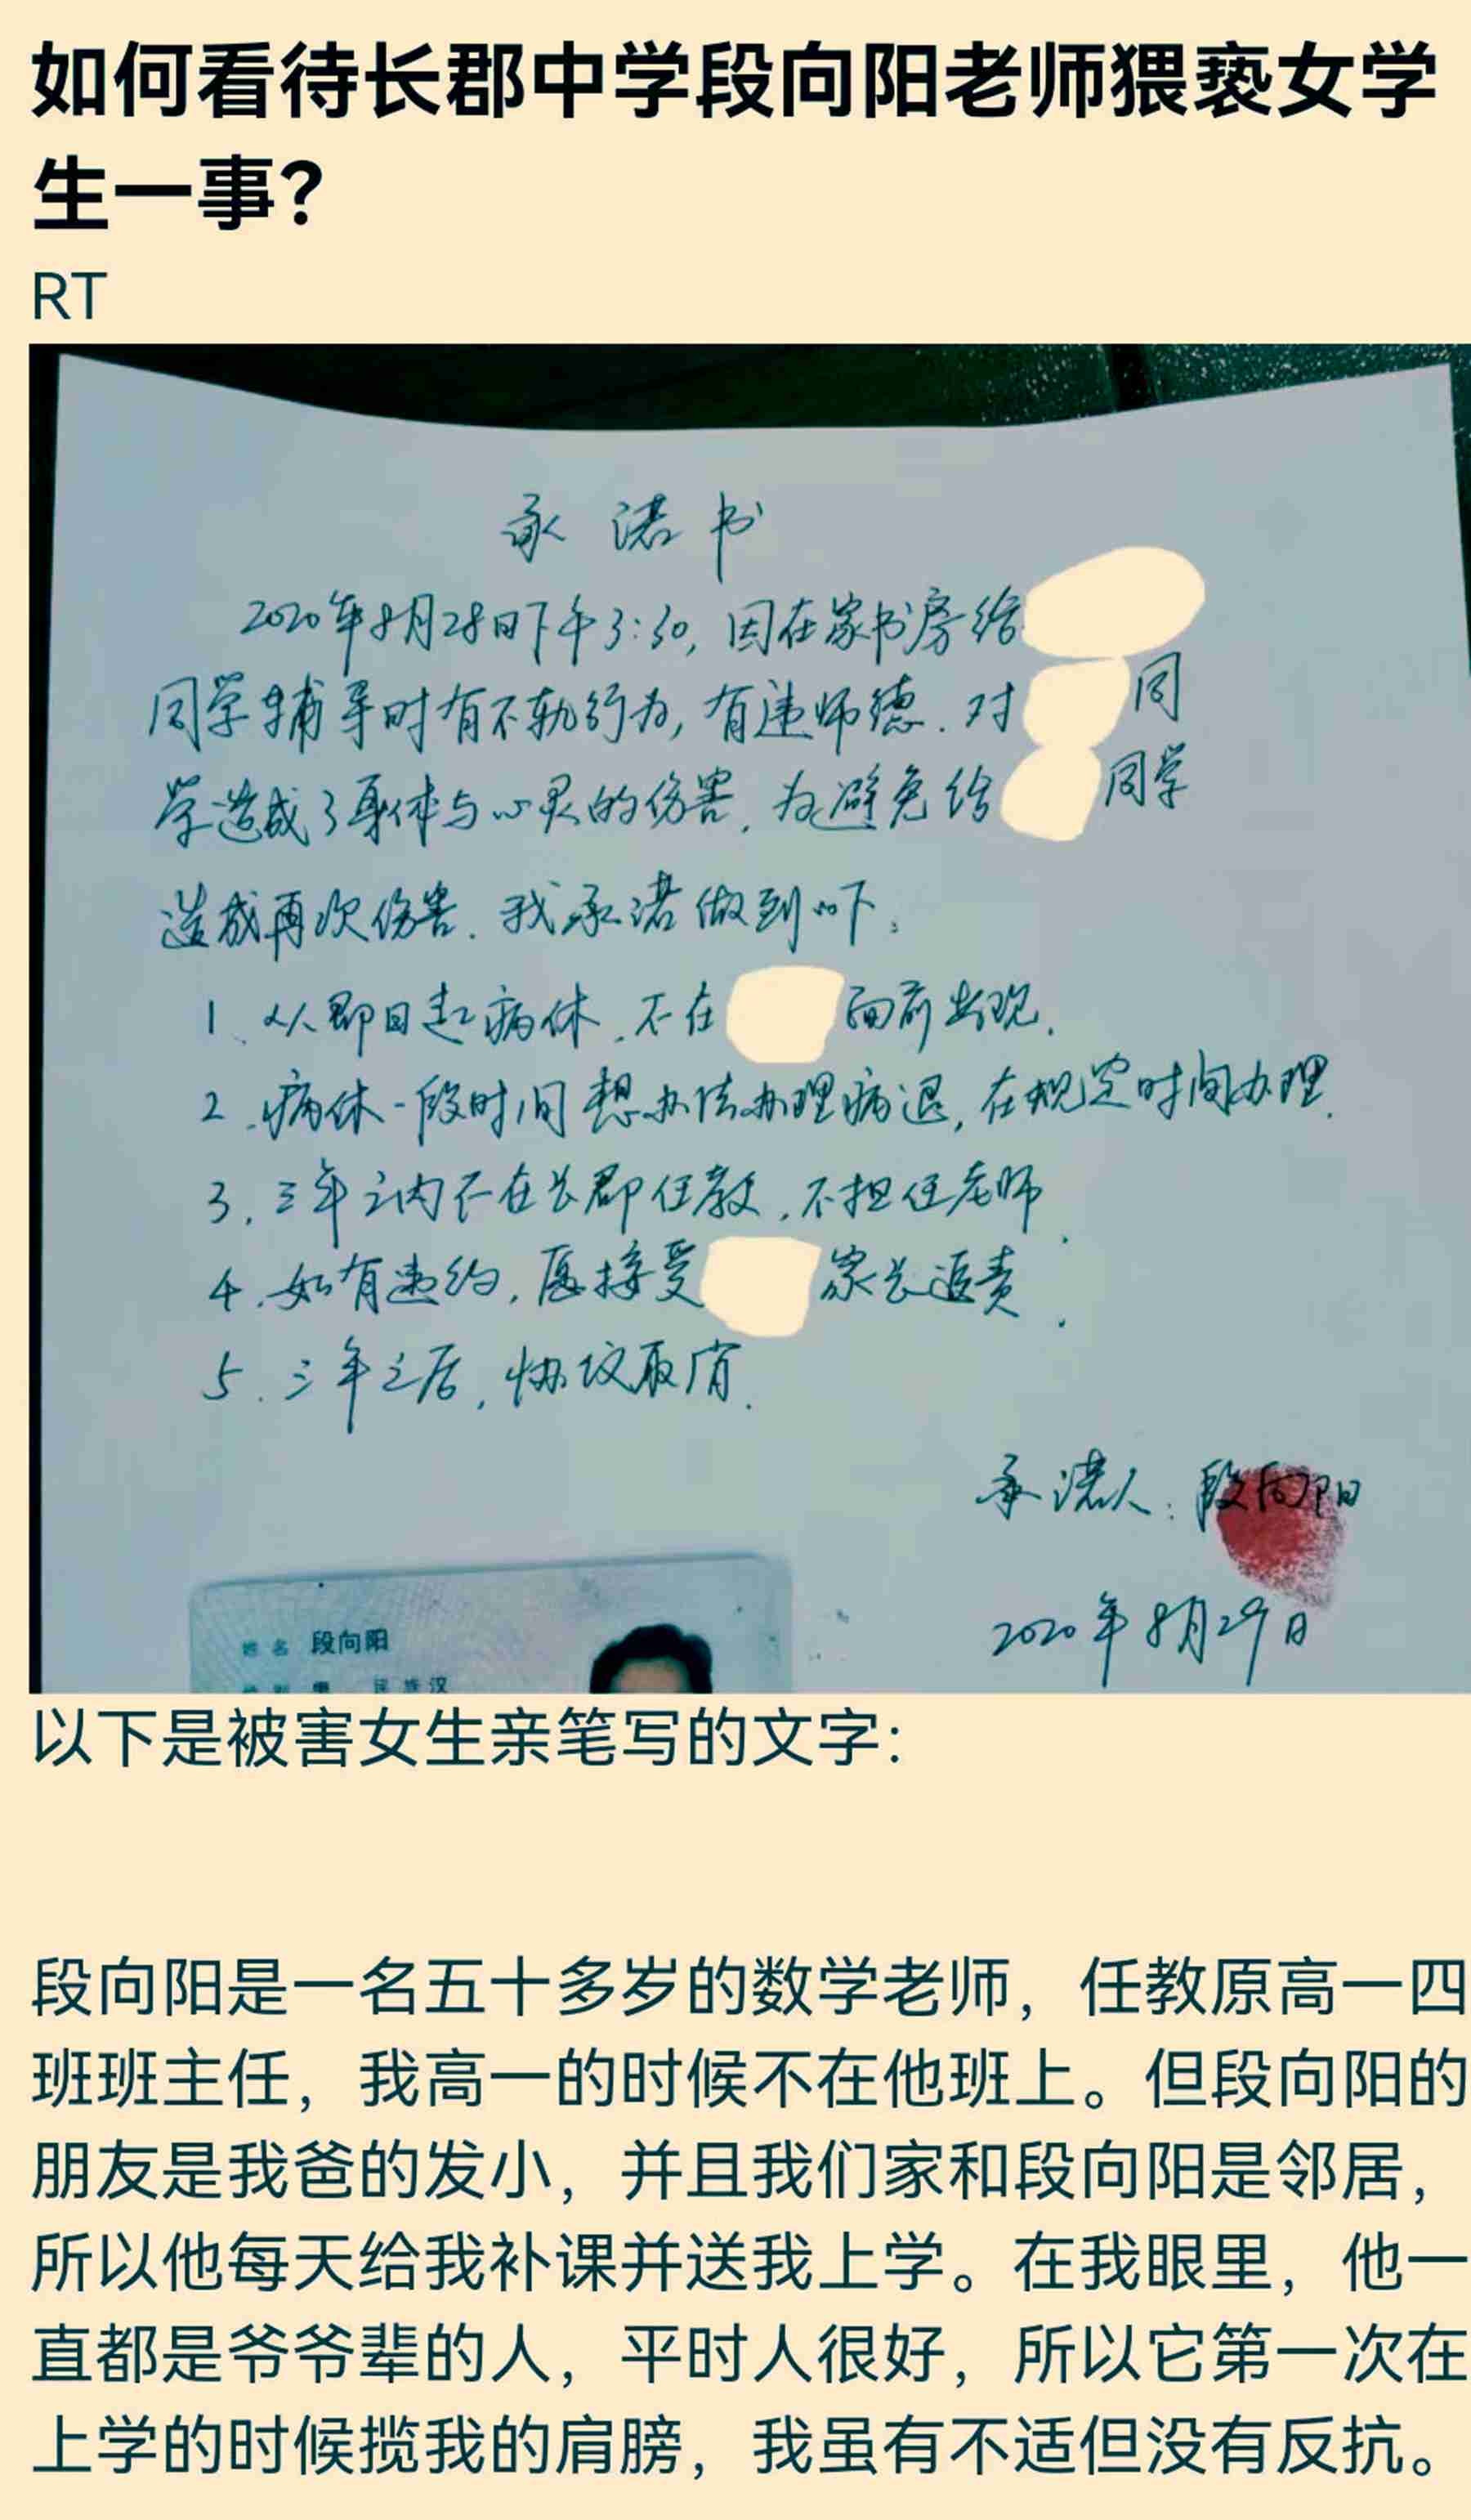 如何看待长郡中学段向阳老师猥亵女学
生一事？
RT
承诺书
2020年8月28日下午3:30,因在家书房给
同学辅导时有不轨行为,有违师德.对 同
学造成了身体与心灵的伤害.为避免给 同学
造成再次伤害.我承诺做到以下:
1、从即日起病休.不在 面前出现.
2.病休一段时间想办法办理病退,在规定时间办理.
3.三年之内不在长郡任教.不担任老师.
4.如有违约.愿接受 家长追责.
5.三年之后,协议取消.
承诺人:段向阳
2020年8月29日
姓名 段向阳
性别 男 民族 汉
以下是被害女生亲笔写的文字：
段向阳是一名五十多岁的数学老师，任教原高一四
班班主任，我高一的时候不在他班上。但段向阳的
朋友是我爸的发小，并且我们家和段向阳是邻居，
所以他每天给我补课并送我上学。在我眼里，他一
直都是爷爷辈的人，平时人很好，所以它第一次在
上学的时候揽我的肩膀，我虽有不适但没有反抗。